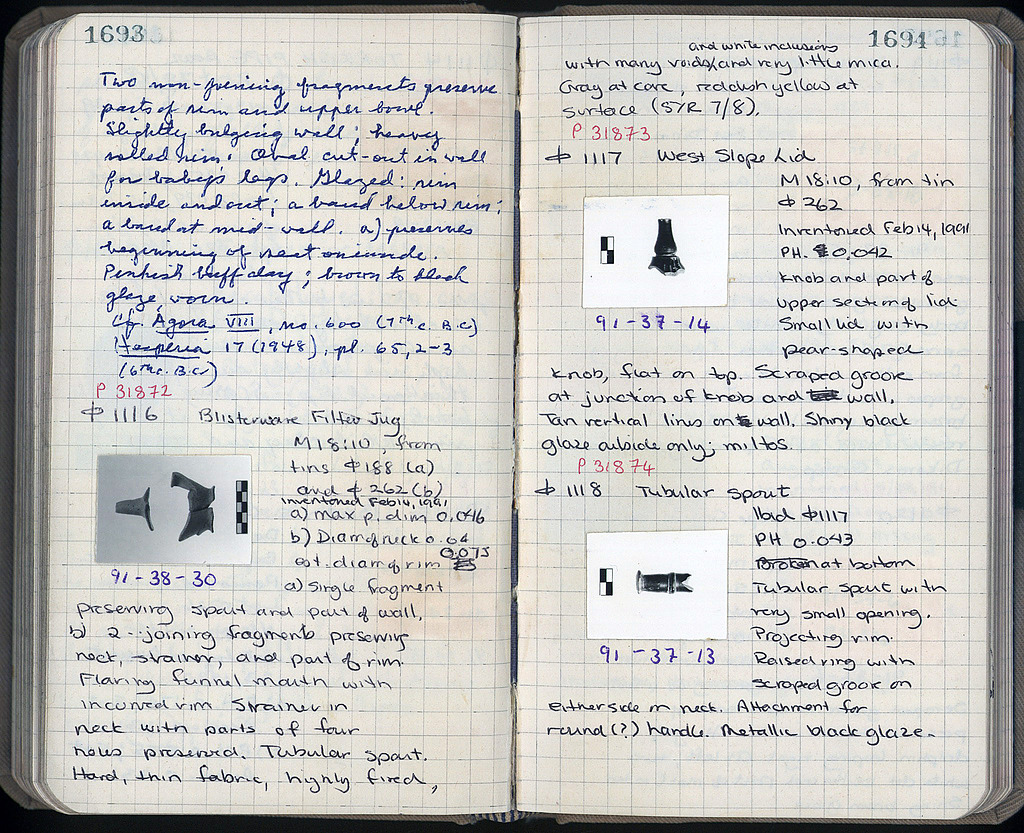 1693
Two non-joining fragments preserve
parts of rim and upper bowl.
Slightly bulging wall; heavy
rolled rim. Oval cut-out in wall
for baby's legs. Glazed: rim
inside and out; a band below rim;
a band at mid-wall. a) preserves
beginning of seat on inside.
Pinkish buff clay; brown to black
glaze, worn.
Cf. Agora VIII, no. 600 (7th c. B.C)
Hesperia 17 (1948), pl. 65, 2-3
(6th c. B.C.)
P 31872
ф 1116 Blisterware Filter Jug
M18:10, from
tins ф188 (a)
and ф 262 (b)
Inventoried Feb 14, 1991
a) max p. dim 0.046
b) Diam of neck 0.04
est. diam of rim 0.075
91-38-30
a) Single fragment
preserving spout and part of wall,
b) 2 joining fragments preserving
neck, strainer, and part of rim.
Flaring funnel mouth with
incurved rim Strainer in
neck with parts of four
holes preserved. Tubular spout.
Hard, thin fabric, highly fired,
1694
and white inclusions
with many voids and very little mica.
Gray at core, reddish yellow at
surface (5YR 7/8).
P 31873
ф 1117 West Slope Lid
M18:10, from tin
ф 262
Inventoried Feb 14, 1991
PH. 0.042
Knob and part of
upper section of lid
Small lid with
pear-shaped
91-37-14
knob, flat on top. Scraped groove
at junction of knob and wall.
Tan vertical lines on wall. Shiny black
glaze outside only; miltos.
P 31874
ф 1118 Tubular Spout
Ibid ф1117
PH 0.043
Broken at bottom
Tubular spout with
very small opening.
Projecting rim.
Raised ring with
scraped groove on
91-37-13
either side on neck. Attachment for
round (?) handle. Metallic black glaze.